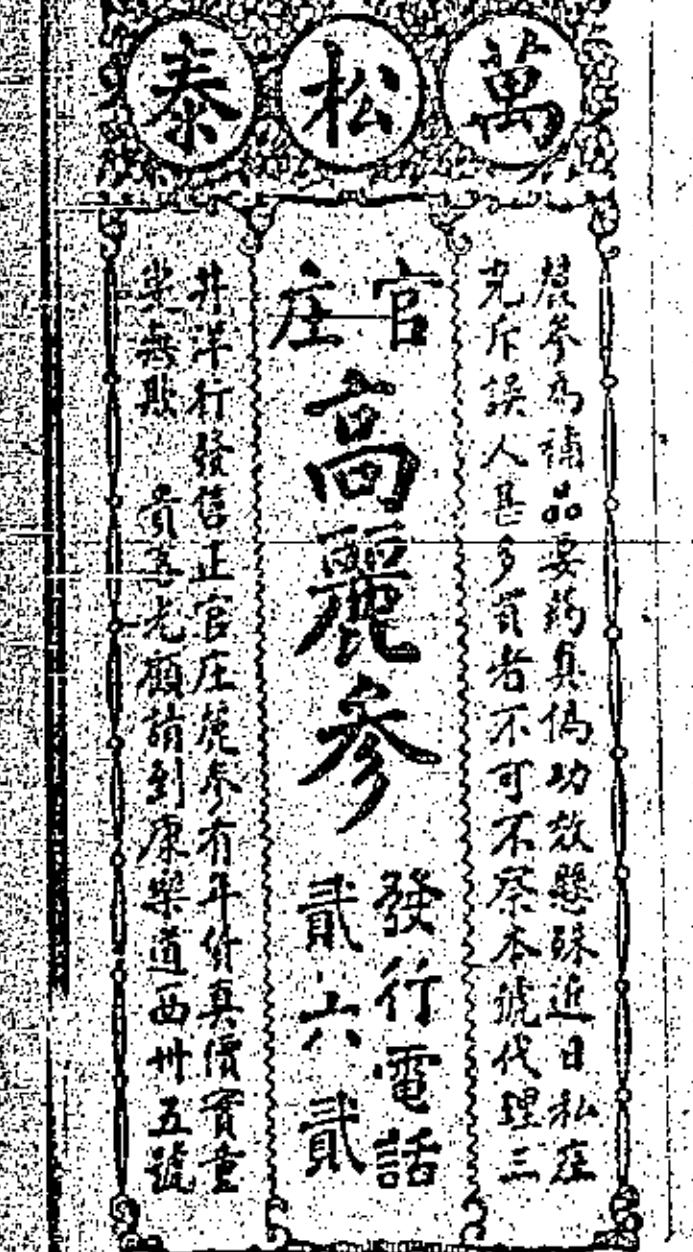 萬松泰
麗參為補品要葯真偽功效懸殊近日私庄
充斥誤人甚多買者不可不察本號代理三
官庄
高麗參
發行電話
貳六貳
井洋行發售正官庄麗參有年貨真價實童
叟無欺 貴客光顧請到康樂道西卅五號